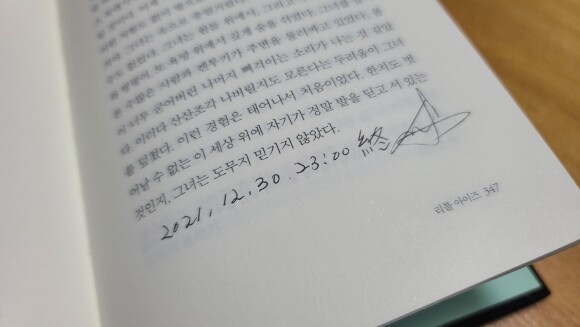 수도 없었다. 그녀는
위에서 깊게 숨을 쉬었다.
른 수많은 사람과 켄투키가 주변을 둘러싸고 있었다. 몸
이 너무 굳어버린 나머지 삐걱이는 소리가 나는 것 같았
다. 이러다 산산조각 나버릴지도 모른다는 두려움이 그녀
를 덮쳤다. 이런 경험은 태어나서 처음이었다. 한치도 벗
어날 수 없는 이 세상 위에 자기가 정말 발을 딛고 서 있는
것인지, 그녀는 도무지 믿기지 않았다.
2021. 12. 30. 23:00 終
리틀 아이즈 347